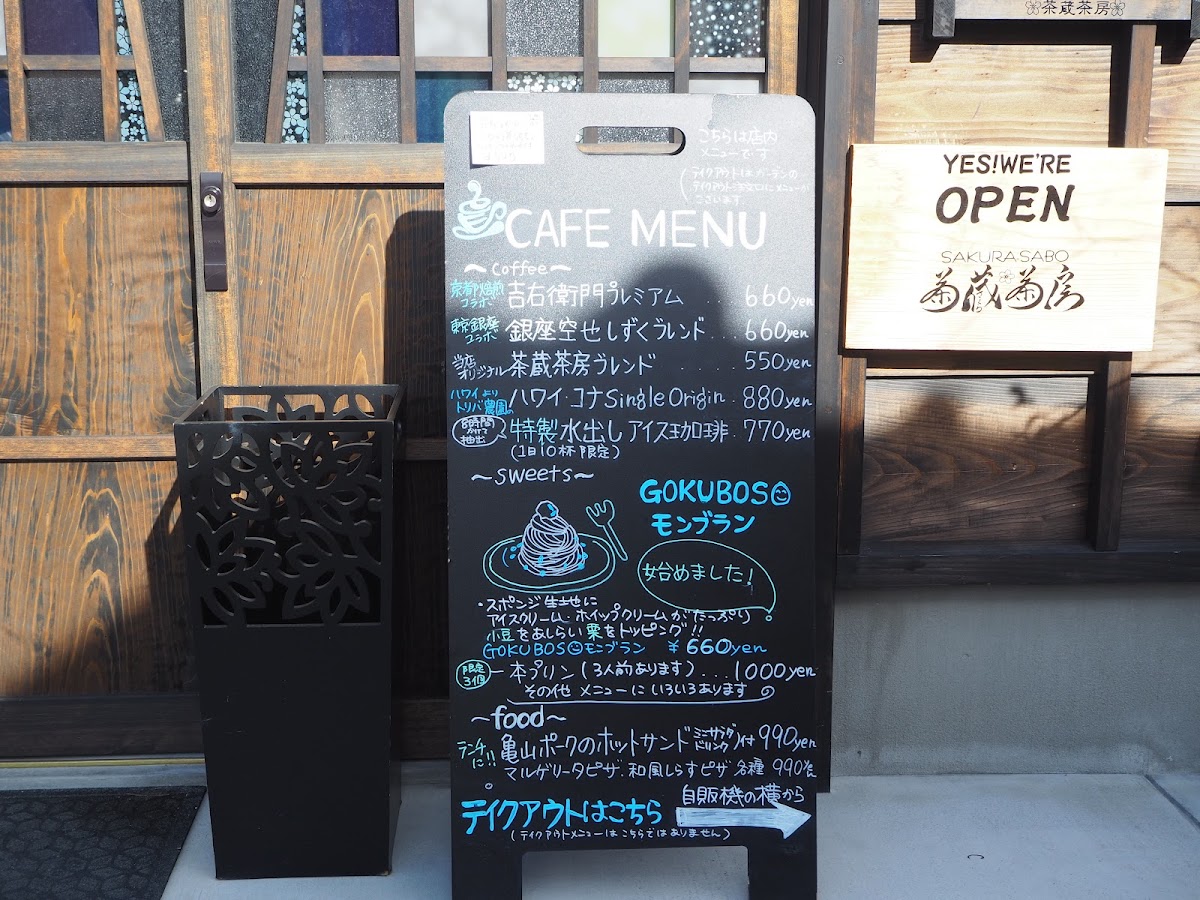 茶蔵茶房
こちらは店内
メニューです
テイクアウトはガーデンの
テイクアウト注文口にメニューが
ございます
CAFE MENU
～coffee～
京都焙煎
コラボ
吉右衛門プレミアム ... 660yen
東京銀座
コラボ
銀座空せしずくブレンド . 660yen
当店
オリジナル
茶蔵茶房ブレンド . . 550yen
ハワイより
トリバ農園の
ハワイ・コナ Single Origin . 880yen
8時間
かけて
抽出
特製水出しアイス珈琲 . 770yen
(1日10杯限定)
～sweets～
GOKUBOS
モンブラン
始めました!
・スポンジ生地に
アイスクリーム・ホイップクリームがたっぷり
小豆をあしらい栗をトッピング!!
GOKUBOSモンブラン ¥660yen
限定
3個
一本プリン (3人前あります) ... 1000yen
その他 メニューにいろいろあります
～food～
ランチ
に!!
亀山ポークのホットサンド
ミニサラダ
ドリンク
付 990yen
マルゲリータピザ. 和風しらすピザ 各種 990
テイクアウトはこちら
自販機の横から
(テイクアウトメニューはこちらではありません)
YES!WE'RE
OPEN
SAKURASABO
茶蔵茶房